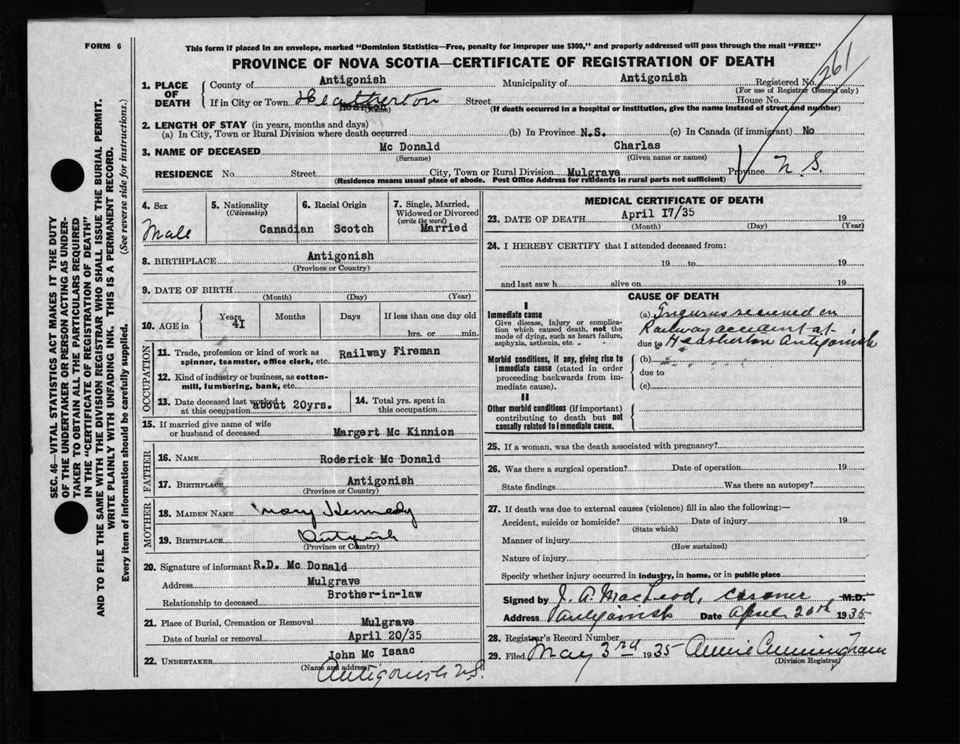 FORM 6
This form if placed in an envelope, marked "Dominion Statistics—Free, penalty for improper use $300," and properly addressed will pass through the mail "FREE"
PROVINCE OF NOVA SCOTIA—CERTIFICATE OF REGISTRATION OF DEATH
261
1. PLACE OF DEATH
County of Antigonish Municipality of Antigonish Registered No.
(For use of Registrar General only)
If in City or Town Heatherton Street House No.
(Name) (If death occurred in a hospital or institution, give the name instead of street and number)
2. LENGTH OF STAY (in years, months and days)
(a) In City, Town or Rural Division where death occurred (b) In Province N.S. (c) In Canada (if immigrant) No
3. NAME OF DECEASED Mc Donald Charlas
(Surname) (Given name or names)
RESIDENCE No Street City, Town or Rural Division Mulgrave Province N.S.
(Residence means usual place of abode. Post Office Address for residents in rural parts not sufficient)
4. Sex
Male
5. Nationality
(Citizenship)
Canadian
6. Racial Origin
Scotch
7. Single, Married, Widowed or Divorced
(write the word)
Married
8. BIRTHPLACE Antigonish
(Province or Country)
9. DATE OF BIRTH
(Month) (Day) (Year)
10. AGE in
Years Months Days If less than one day old
41
hrs. or min.
OCCUPATION
11. Trade, profession or kind of work as
spinner, teamster, office clerk, etc. Railway Fireman
12. Kind of industry or business, as cotton-
mill, lumbering, bank, etc.
13. Date deceased last worked
at this occupation about 20yrs.
14. Total yrs. spent in
this occupation
15. If married give name of wife
or husband of deceased Margert Mc Kinnion
FATHER
16. NAME Roderick Mc Donald
17. BIRTHPLACE Antigonish
(Province or Country)
MOTHER
18. MAIDEN NAME Mary Kennedy
19. BIRTHPLACE Antigonish
(Province or Country)
20. Signature of informant R.D. Mc Donald
Address Mulgrave
Relationship to deceased Brother-in-law
21. Place of Burial, Cremation or Removal Mulgrave
Date of burial or removal April 20/35
22. UNDERTAKER John Mc Isaac
(Name and address)
Antigonish N.S.
MEDICAL CERTIFICATE OF DEATH
23. DATE OF DEATH April 17/35 19
(Month) (Day) (Year)
24. I HEREBY CERTIFY that I attended deceased from:
19 to 19
and last saw h alive on 19
CAUSE OF DEATH
I
Immediate cause
Give disease, injury or complica-
tion which caused death, not the
mode of dying, such as heart failure,
asphyxia, asthenia, etc.
(a) Injuries received in
Railway accident at
due to Heatherton Antigonish
Morbid conditions, if any, giving rise to
immediate cause (stated in order
proceeding backwards from im-
mediate cause).
(b)
due to
(c)
II
Other morbid conditions (if important)
contributing to death but not
causally related to immediate cause.
25. If a woman, was the death associated with pregnancy?
26. Was there a surgical operation? Date of operation 19
State findings Was there an autopsy?
27. If death was due to external causes (violence) fill in also the following:—
Accident, suicide or homicide? Date of injury 19
(State which)
Manner of injury
(How sustained)
Nature of injury
Specify whether injury occurred in industry, in home, or in public place
Signed by J. A. MacLeod, Coroner M.D.
Address Antigonish Date April 20th 1935
28. Registrar's Record Number
29. Filed May 3rd 1935 Annie Cunningham
(Division Registrar)
SEC. 46—VITAL STATISTICS ACT MAKES IT THE DUTY
OF THE UNDERTAKER OR PERSON ACTING AS UNDER-
TAKER TO OBTAIN ALL THE PARTICULARS REQUIRED
IN THE "CERTIFICATE OF REGISTRATION OF DEATH"
AND TO FILE THE SAME WITH THE DIVISION REGISTRAR WHO SHALL ISSUE THE BURIAL PERMIT.
WRITE PLAINLY WITH UNFADING INK. THIS IS A PERMANENT RECORD.
Every item of information should be carefully supplied. (See reverse side for instructions.)